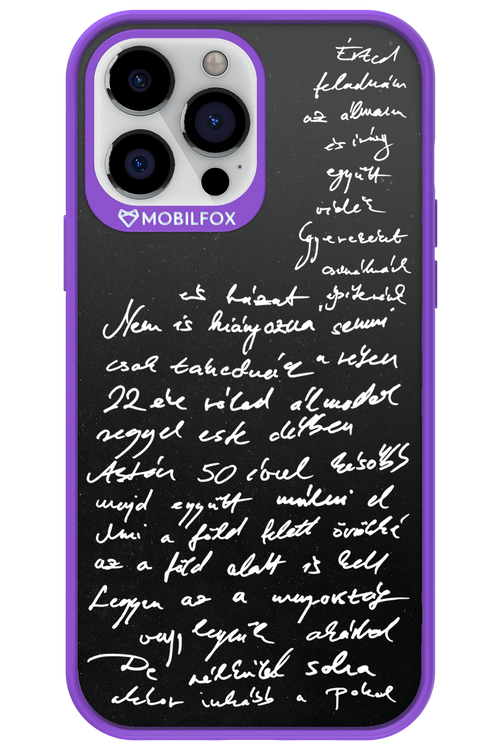 MOBILFOX
Érted
feladnám
az álmaim
és irány
együtt
vidék
Gyerekeket
csinálnánk
és házat építenénk
Nem is hiányozna semmi
csak takednék a rélyen
22 éve rólad álmodok
reggel este délben
Aztán 50 évvel később
majd együtt múlni el
Ami a föld felett örökké
az a föld alatt is kell
Legyen az a mennyország
vagy legyünk akárhol
De nélküled soha
akkor inkább a pokol